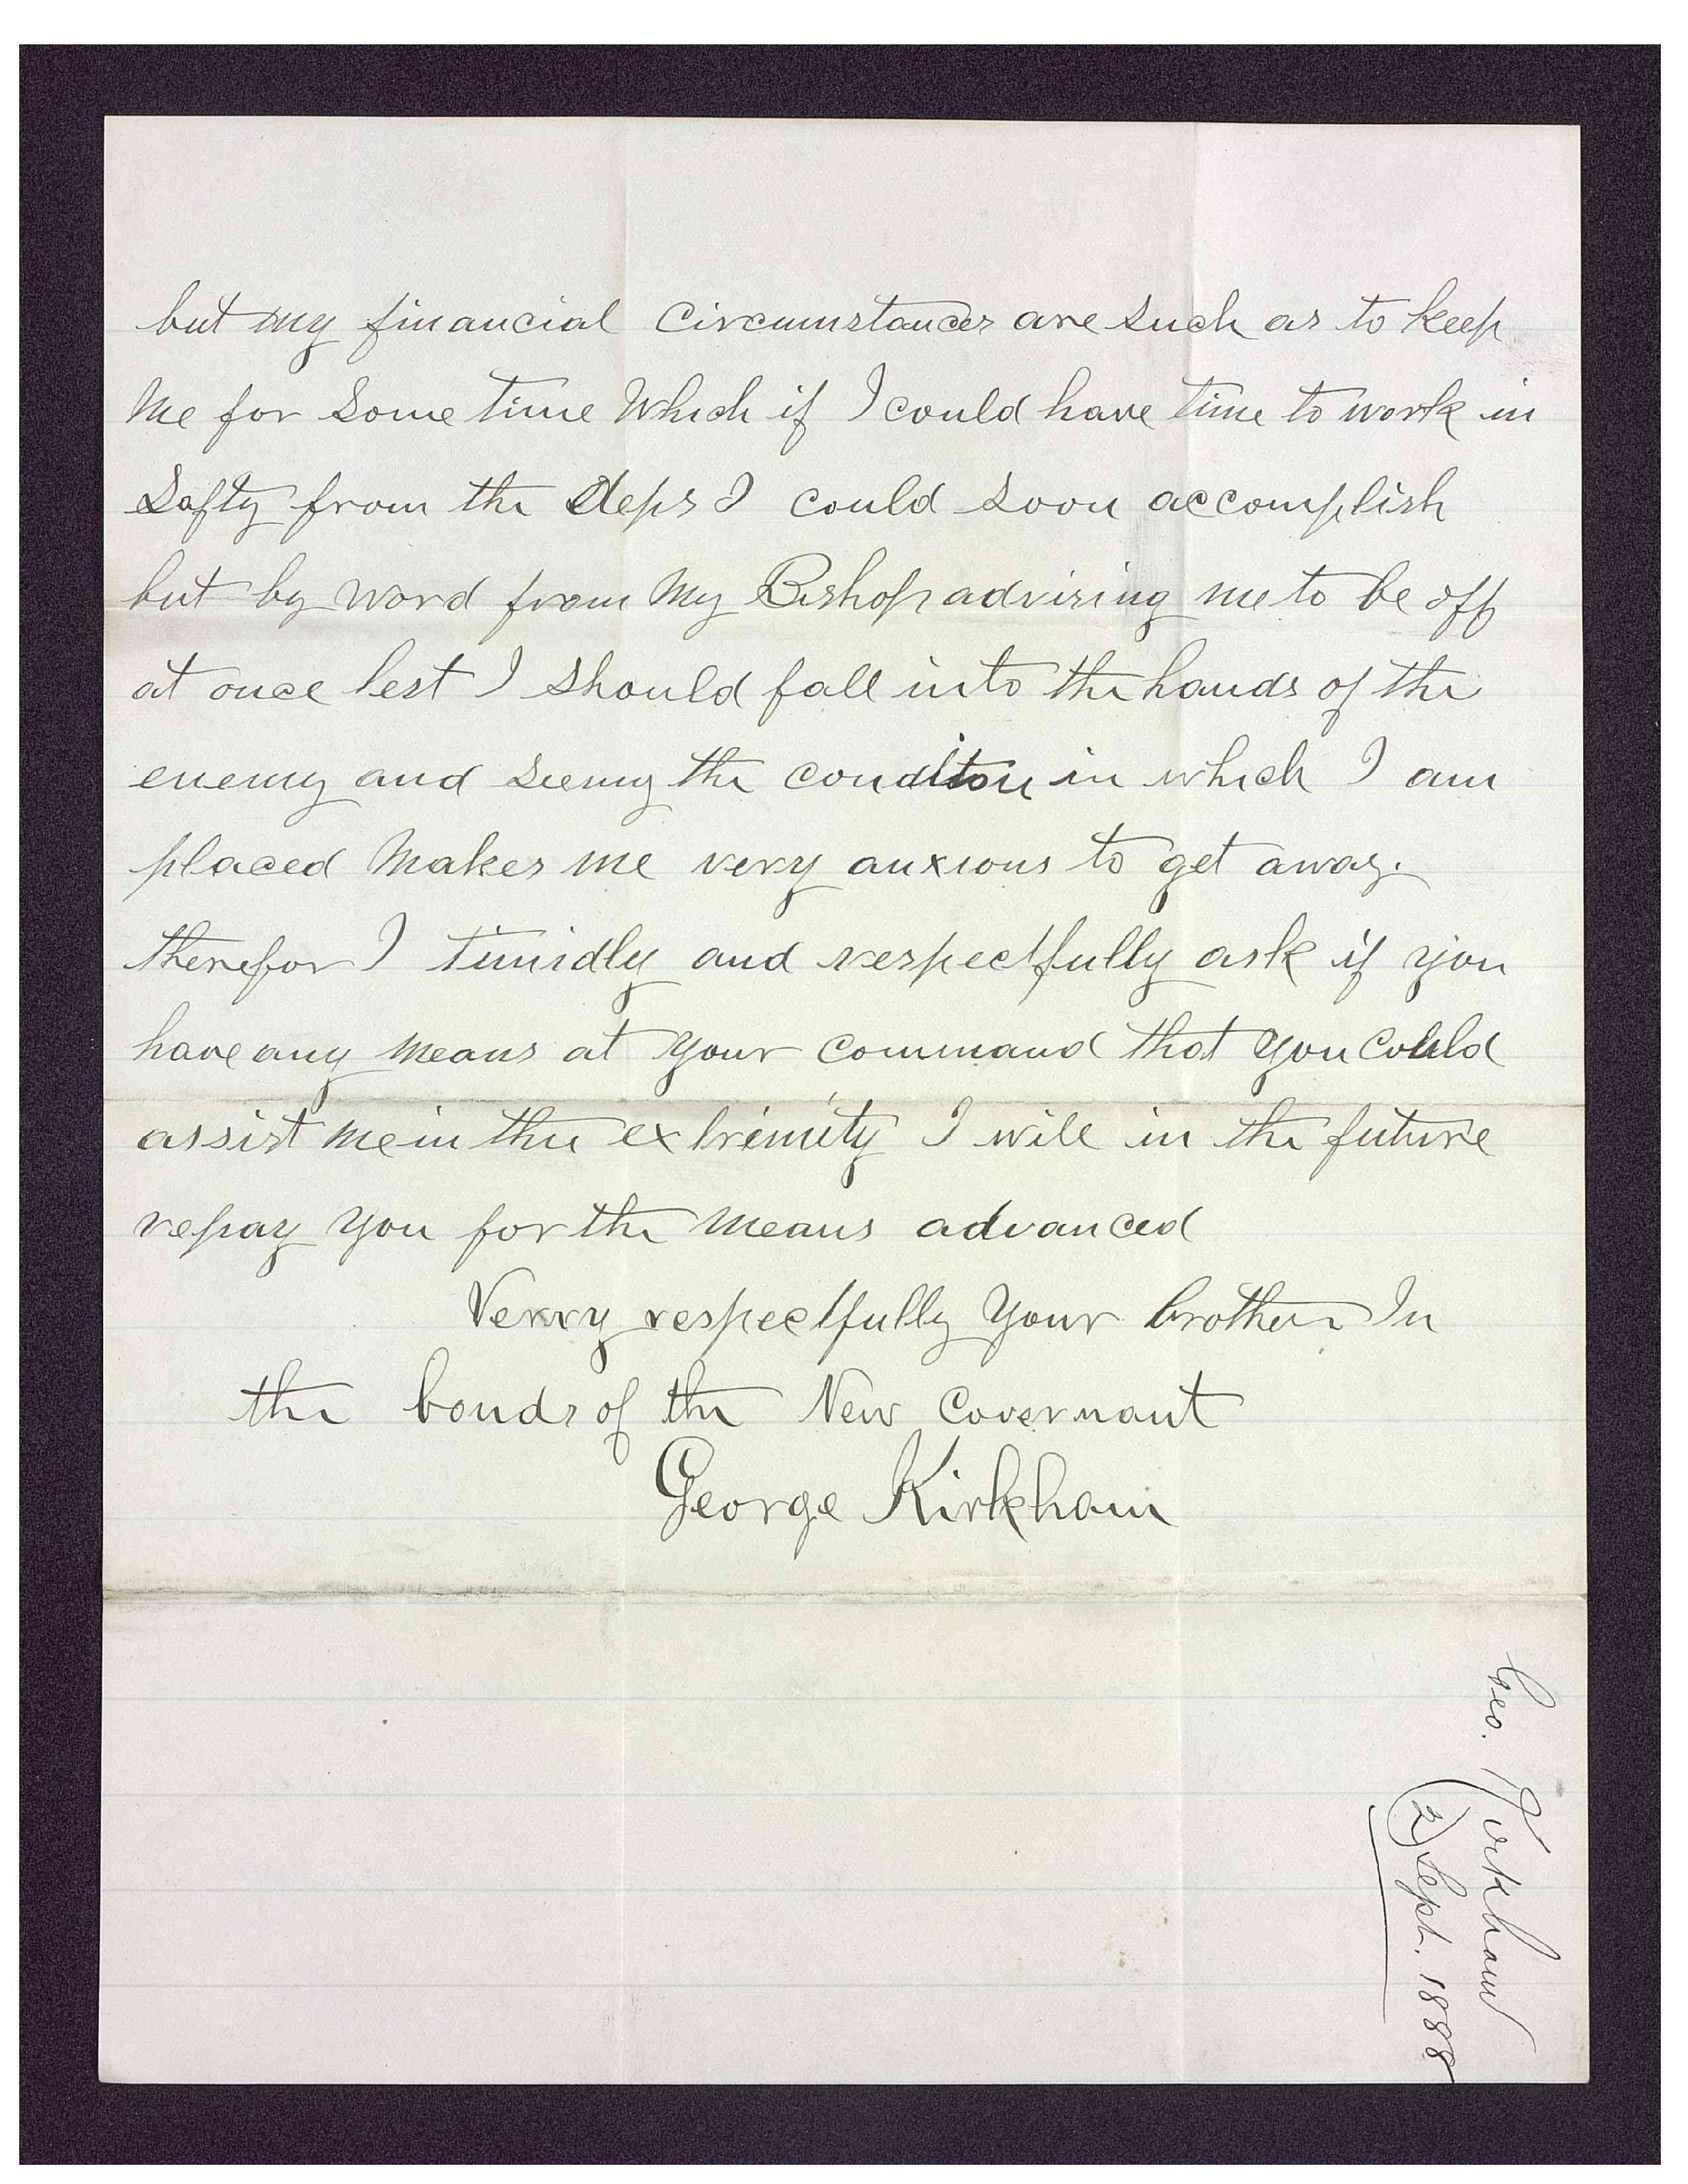 but my financial Circumstances are such as to keep
Me for Some time Which if I could have time to work in
Safty from the Deps I could soon accomplish
but by word from My Bishop advising me to be off
at once lest I should fall into the hands of the
enemy and seeing the conditon in which I am
placed Makes me very anxious to get away.
therefor I timidly and respectfully ask if you
have any Means at your command that you could
assist me in this extrimity I will in the future
repay you for the Means advanced
Verry respectfully Your brother In
the bonds of the New Covernant
George Kirkham
Geo. Kirkham
2) Sept. 1888